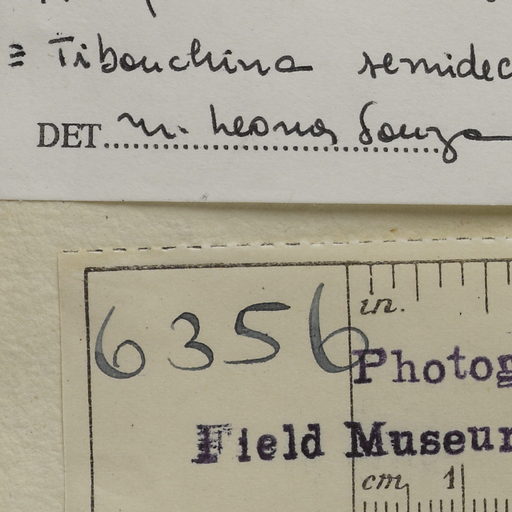 ≡ Tibouchina semidec
DET. M. Leonor Souza
in.
6356
Photog
Field Museum
cm 1